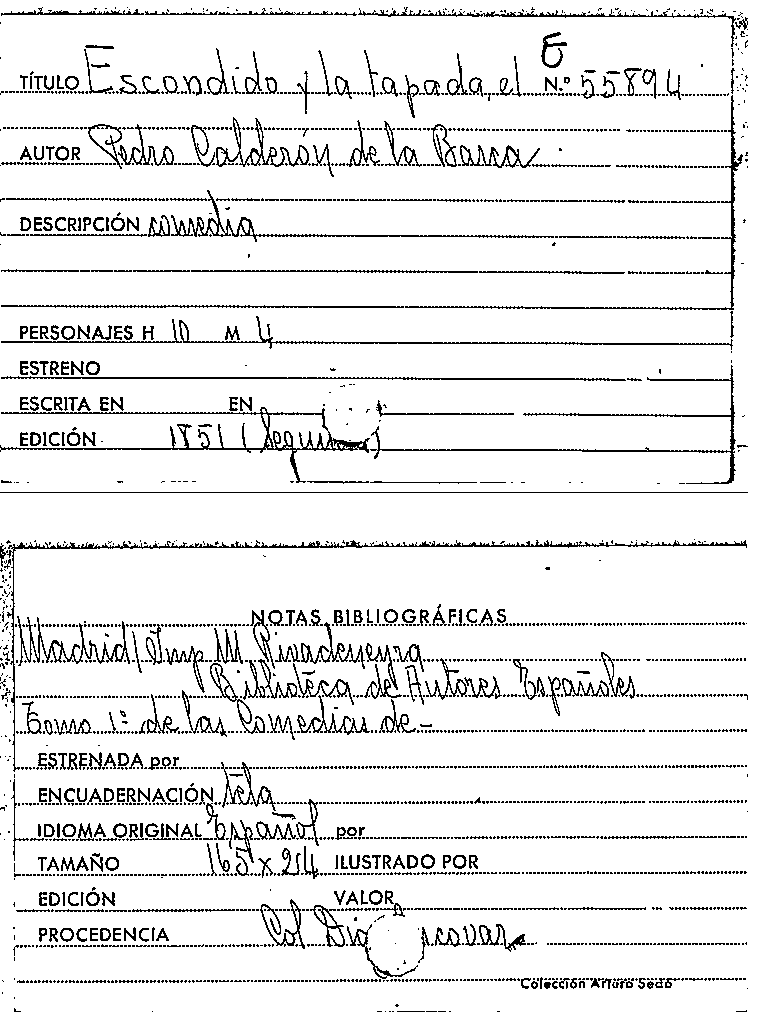 E
TÍTULO Escondido y la tapada, el N.º 55894
AUTOR Pedro Calderón de la Barca
DESCRIPCIÓN comedia
PERSONAJES H 10 M 4
ESTRENO
ESCRITA EN EN
EDICIÓN 1851
NOTAS BIBLIOGRÁFICAS
Madrid / Imp M Rivadeneyra
Biblioteca de Autores Españoles
Tomo 1º de las Comedias de -
ESTRENADA por
ENCUADERNACIÓN tela
IDIOMA ORIGINAL Español por
TAMAÑO 165 x 214 ILUSTRADO POR
EDICIÓN VALOR
PROCEDENCIA Col
Colección Arturo Sedó